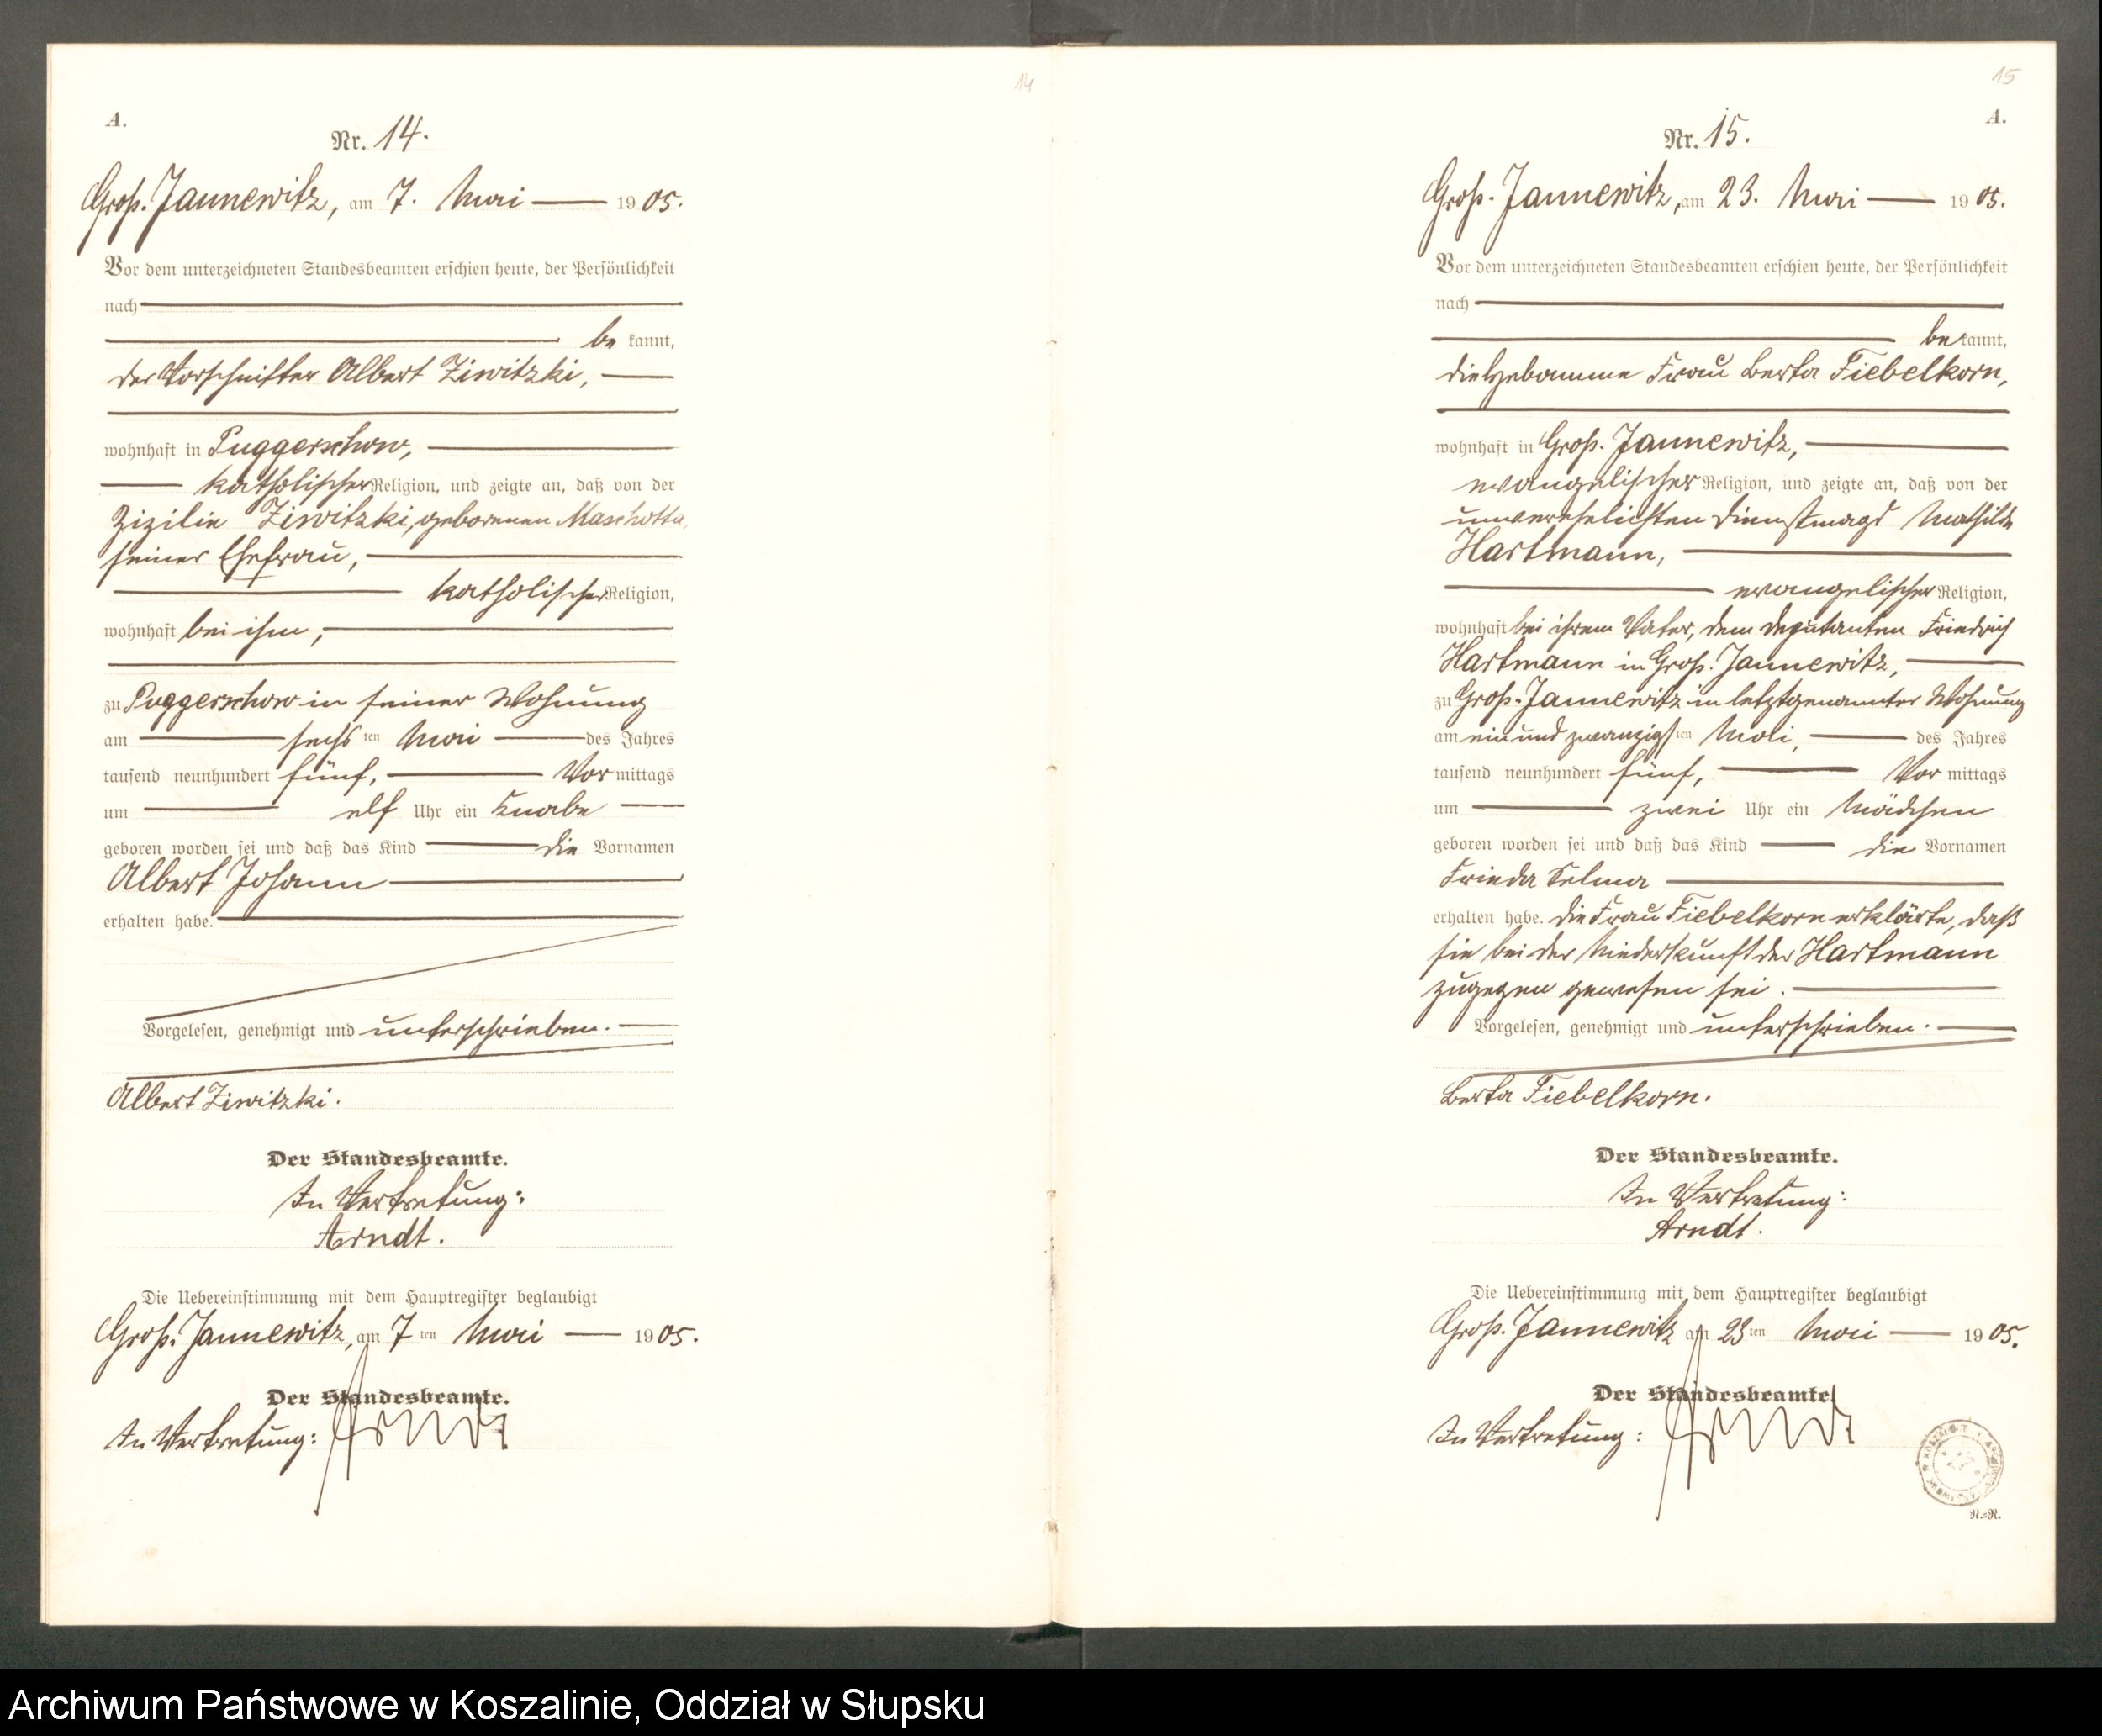 14
A.
Nr. 14.
Groß. Jannewitz, am 7. Mai 1905.
Vor dem unterzeichneten Standesbeamten erschien heute, der Persönlichkeit
nach
be kannt,
der Vorschnitter Albert Ziwitzki,
wohnhaft in Puggerschow,
katholischer Religion, und zeigte an, daß von der
Zizilie Ziwitzki, geborenen Maschotta,
seiner Ehefrau,
katholischer Religion,
wohnhaft bei ihm,
zu Puggerschow in seiner Wohnung
am sechs ten Mai des Jahres
tausend neunhundert fünf, Vor mittags
um elf Uhr ein Knabe
geboren worden sei und daß das Kind die Vornamen
Albert Johann
erhalten habe.
Vorgelesen, genehmigt und unterschrieben.
Albert Ziwitzki.
Der Standesbeamte.
In Vertretung:
Arndt.
Die Uebereinstimmung mit dem Hauptregister beglaubigt
Groß. Jannewitz, am 7 ten Mai 1905.
Der Standesbeamte.
In Vertretung: Arndt
15
A.
Nr. 15.
Groß. Jannewitz, am 23. Mai 1905.
Vor dem unterzeichneten Standesbeamten erschien heute, der Persönlichkeit
nach
be kannt,
die Hebamme Frau Berta Fiebelkorn,
wohnhaft in Groß. Jannewitz,
evangelischer Religion, und zeigte an, daß von der
unverehelichten Dienstmagd Mathilde
Hartmann,
evangelischer Religion,
wohnhaft bei ihrem Vater, dem Deputanten Friedrich
Hartmann in Groß. Jannewitz,
zu Groß. Jannewitz in letztgenannter Wohnung
am ein und zwanzigs ten Mai, des Jahres
tausend neunhundert fünf, Vor mittags
um zwei Uhr ein Mädchen
geboren worden sei und daß das Kind die Vornamen
Frieda Selma
erhalten habe. Die Frau Fiebelkorn erklärte, daß
sie bei der Niederkunft der Hartmann
zugegen gewesen sei.
Vorgelesen, genehmigt und unterschrieben.
Berta Fiebelkorn.
Der Standesbeamte.
In Vertretung:
Arndt.
Die Uebereinstimmung mit dem Hauptregister beglaubigt
Groß. Jannewitz am 23 ten Mai 1905.
Der Standesbeamte.
In Vertretung: Arndt
R.=R.
Archiwum Państwowe w Koszalinie, Oddział w Słupsku